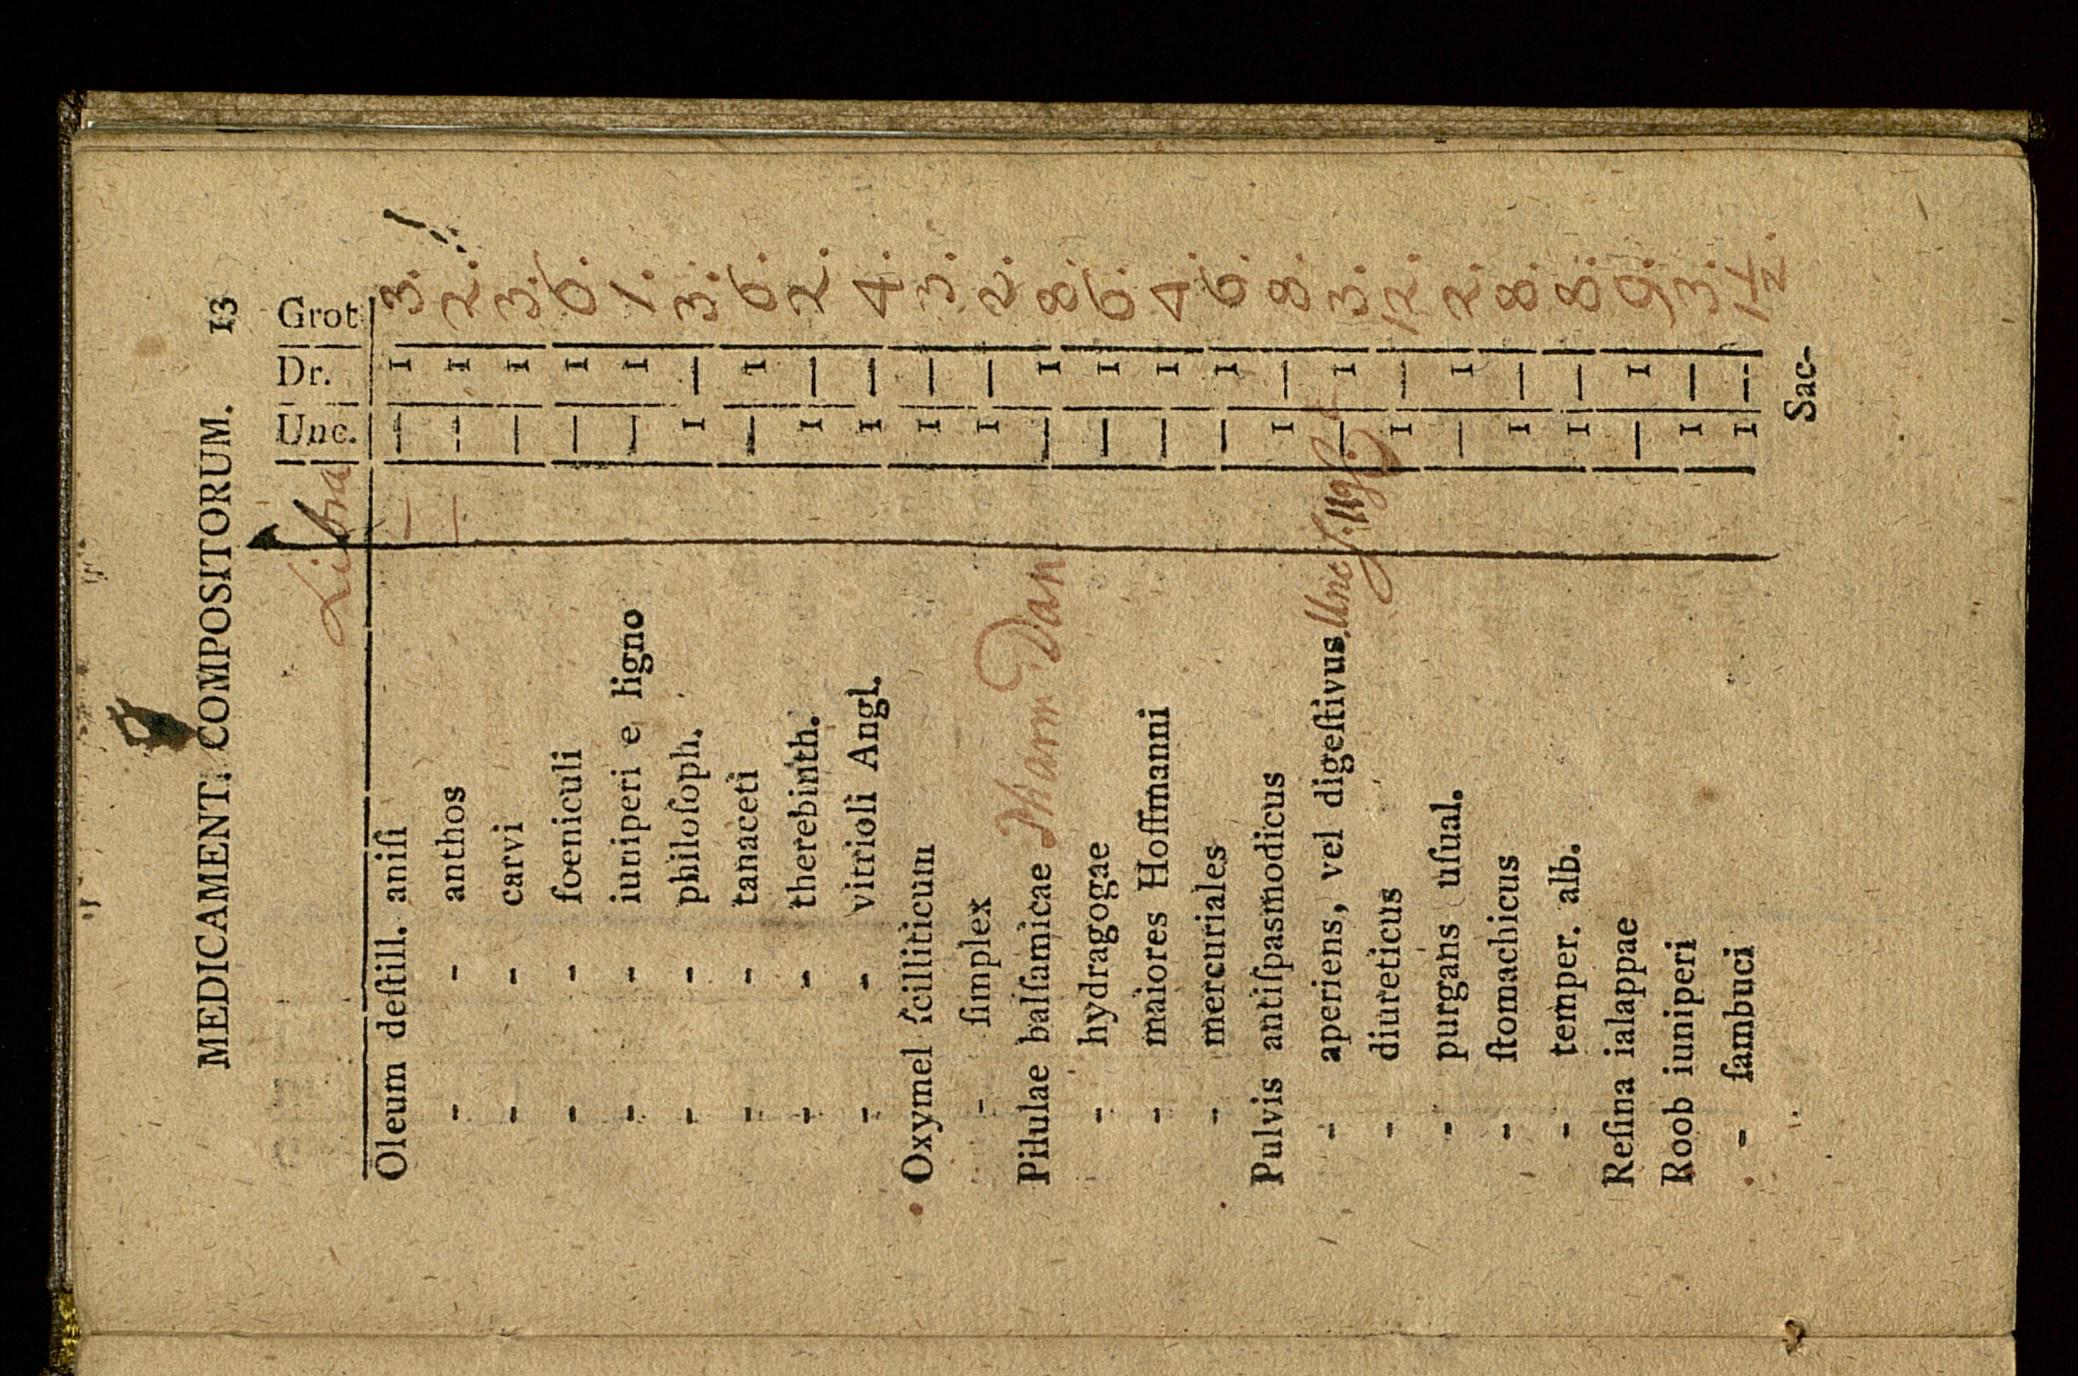 MEDICAMENT. COMPOSITORUM. 13
Libra Unc. Dr. Grot
Oleum deſtill. aniſi — 1 3.
- - anthos — 1 2.
- - carvi — 1 3.
- - foeniculi — 1 6.
- - iuniperi e ligno — 1 1.
- - philoſoph. 1 — 3.
- - tanaceti — 1 6.
- - therebinth. 1 — 2.
- - vitrioli Angl. 1 — 4.
Oxymel ſcilliticum 1 — 3.
- ſimplex 1 — 2.
Pilulae balſamicae Pharm Dan — 1 8.
- hydragogae — 1 6.
- maiores Hoffmanni — 1 4.
- mercuriales — 1 6.
Pulvis antiſpasmodicus 1 — 8.
- aperiens, vel digeſtivus, Unc — 1 3.
- diureticus 1 — 12.
- purgans uſual. — 1 2.
- ſtomachicus 1 — 8.
- temper. alb. 1 — 8.
Reſina ialappae — 1 9.
Roob iuniperi 1 — 3.
- ſambuci 1 — 1½.
Sac-